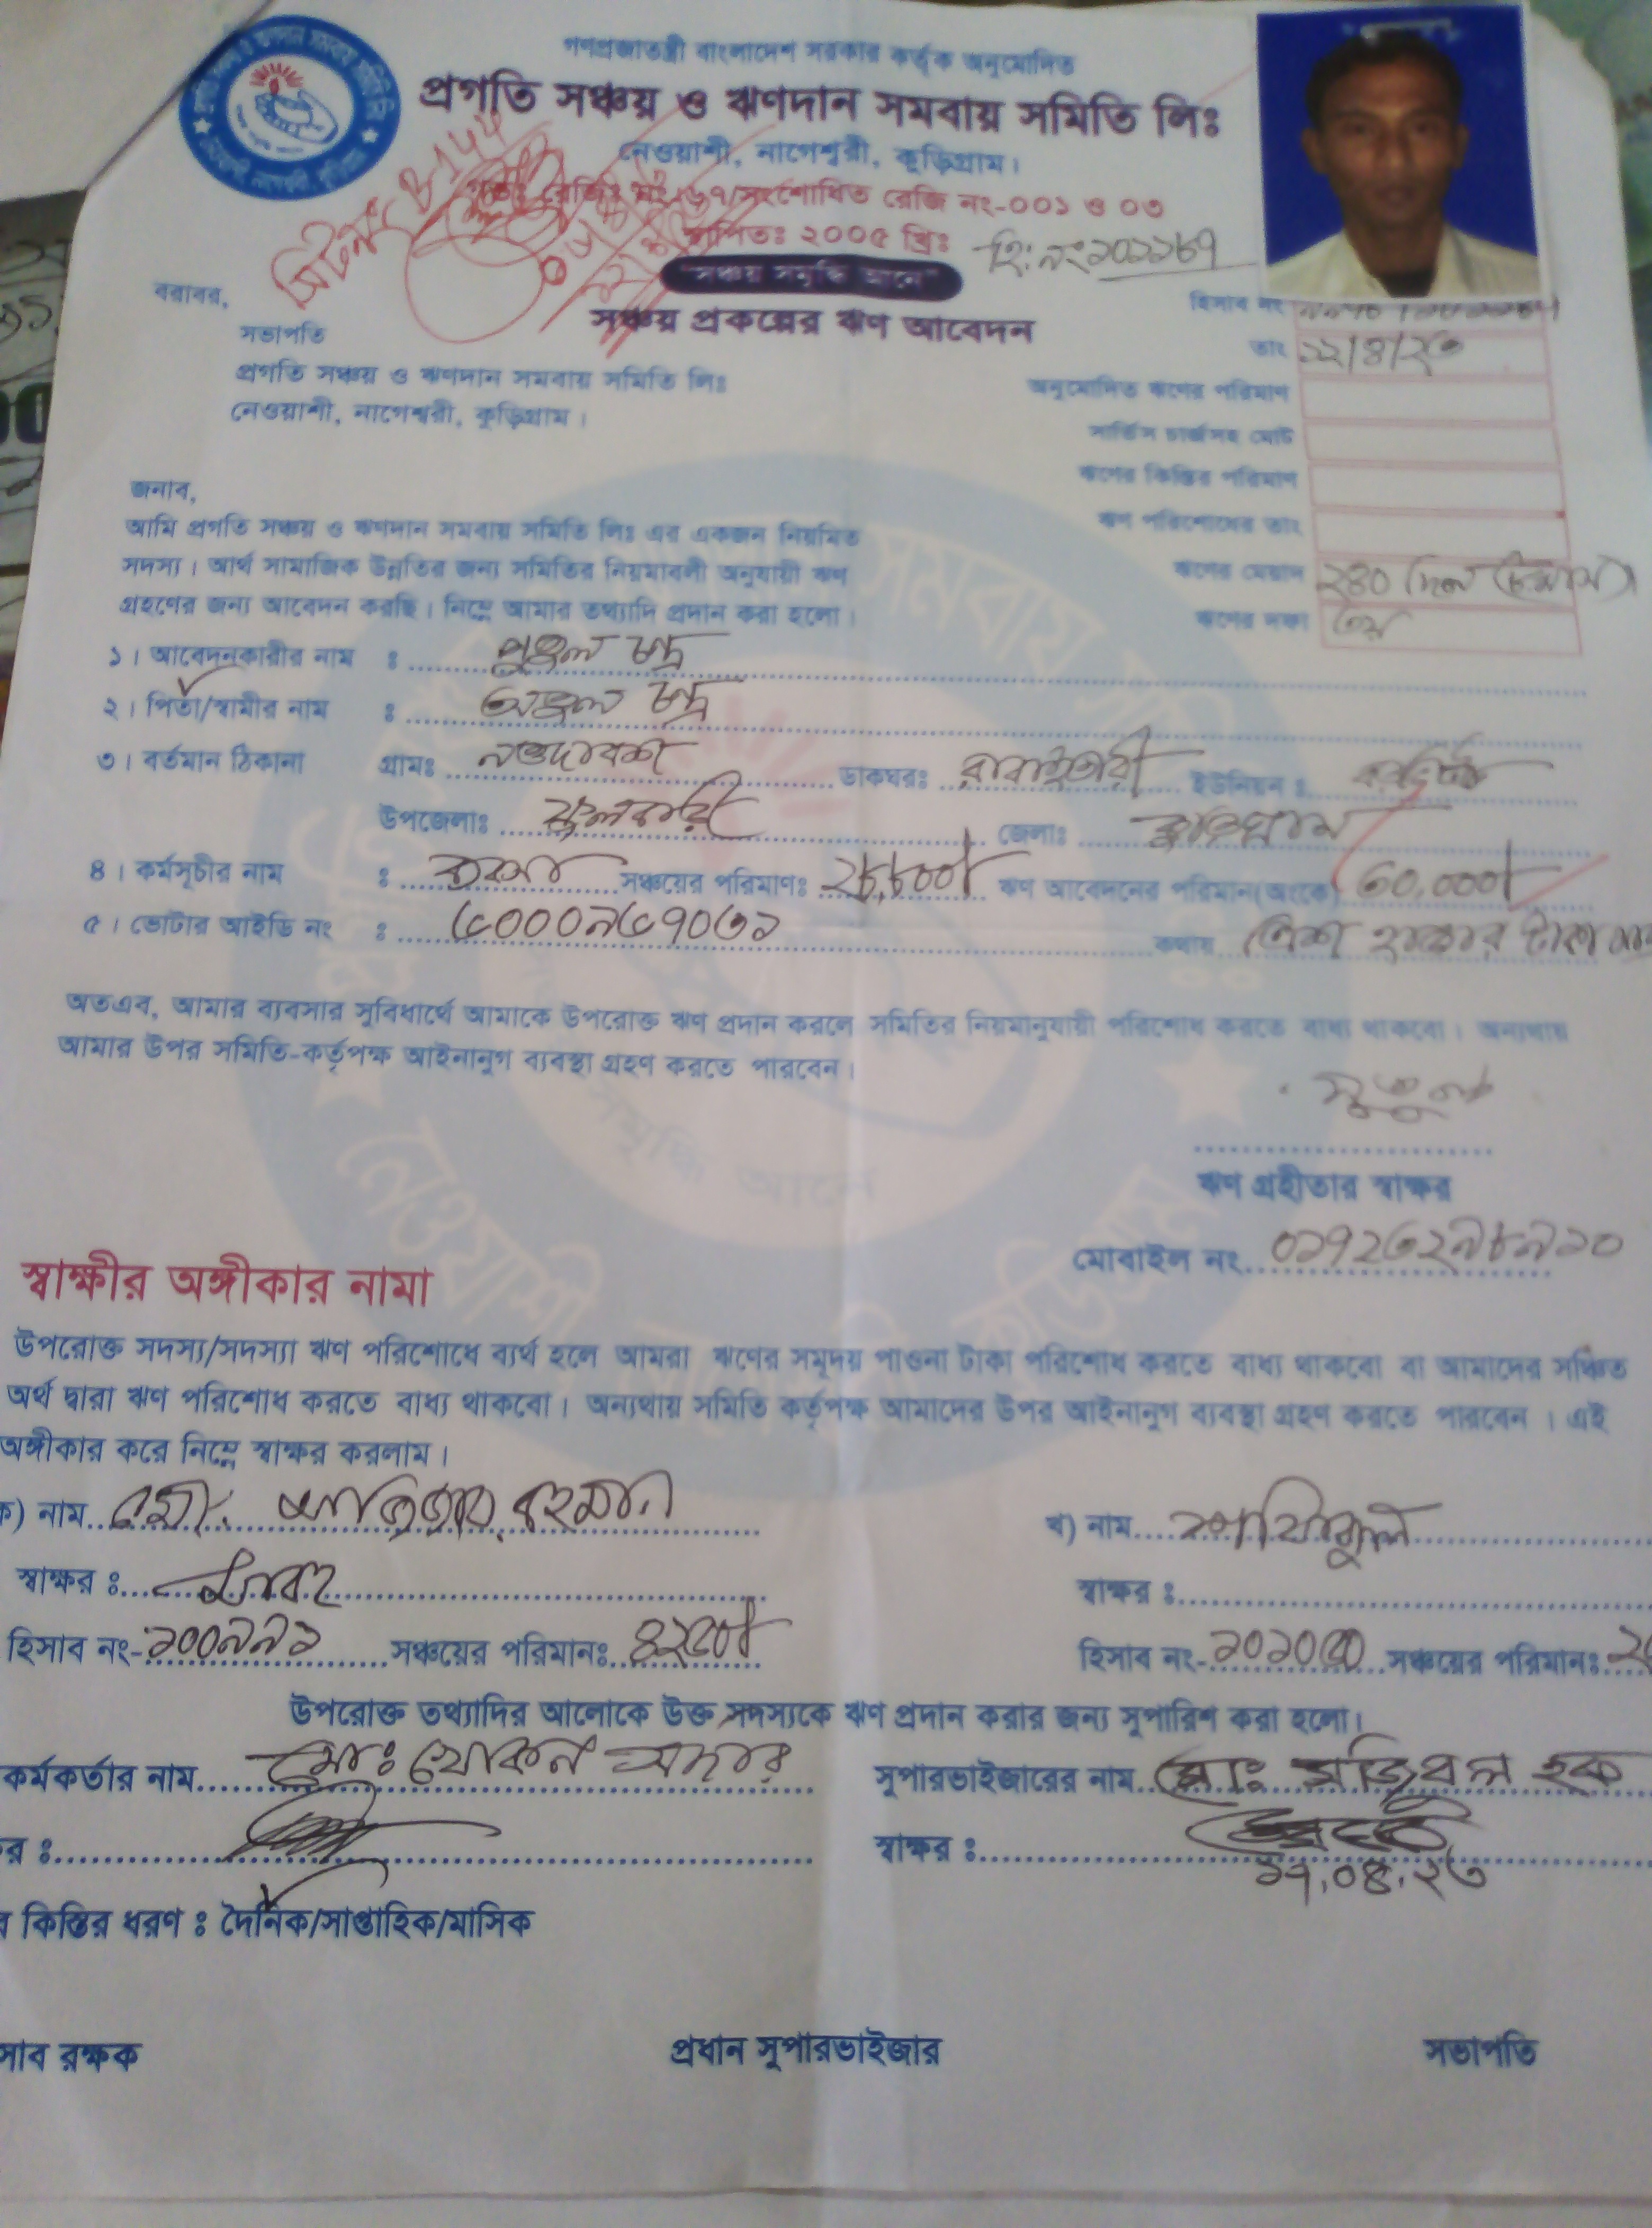 গণপ্রজাতন্ত্রী বাংলাদেশ সরকার কর্তৃক অনুমোদিত
প্রগতি সঞ্চয় ও ঋণদান সমবায় সমিতি লিঃ
নেওয়াশী, নাগেশ্বরী, কুড়িগ্রাম।
রেজিঃ নং-৬৭/সংশোধিত রেজি নং-০০১ ও ০৩
স্থাপিতঃ ২০০৫ খ্রিঃ
হি: নং ১০১১৮৭
"সঞ্চয় সমৃদ্ধি আনে"
সঞ্চয় প্রকল্পের ঋণ আবেদন
হিসাব নং
তাং ১২/৪/২৩
অনুমোদিত ঋণের পরিমাণ
সার্ভিস চার্জসহ মোট
ঋণের কিস্তির পরিমাণ
ঋণ পরিশোধের তাং
ঋণের মেয়াদ ২৪০ দিন
ঋণের দফা ৩য়
বরাবর,
সভাপতি
প্রগতি সঞ্চয় ও ঋণদান সমবায় সমিতি লিঃ
নেওয়াশী, নাগেশ্বরী, কুড়িগ্রাম।
জনাব,
আমি প্রগতি সঞ্চয় ও ঋণদান সমবায় সমিতি লিঃ এর একজন নিয়মিত
সদস্য। আর্থ সামাজিক উন্নতির জন্য সমিতির নিয়মাবলী অনুযায়ী ঋণ
গ্রহণের জন্য আবেদন করছি। নিম্নে আমার তথ্যাদি প্রদান করা হলো।
১। আবেদনকারীর নাম : চন্দ্র
২। পিতা/স্বামীর নাম : চন্দ্র
৩। বর্তমান ঠিকানা গ্রামঃ নওদাবশ ডাকঘরঃ রাবাইতারী ইউনিয়ন :
উপজেলাঃ ফুলবাড়ী জেলাঃ কুড়িগ্রাম
৪। কর্মসূচীর নাম : সঞ্চয়ের পরিমাণঃ ২৮,৮০০/ ঋণ আবেদনের পরিমান(অংকে) ৩০,০০০/
৫। ভোটার আইডি নং : কথায় ত্রিশ হাজার টাকা
অতএব, আমার ব্যবসার সুবিধার্থে আমাকে উপরোক্ত ঋণ প্রদান করলে সমিতির নিয়মানুযায়ী পরিশোধ করতে বাধ্য থাকবো। অন্যথায়
আমার উপর সমিতি-কর্তৃপক্ষ আইনানুগ ব্যবস্থা গ্রহণ করতে পারবেন।
ঋণ গ্রহীতার স্বাক্ষর
মোবাইল নং ০১৭২৩২৯৮৯১০
স্বাক্ষীর অঙ্গীকার নামা
উপরোক্ত সদস্য/সদস্যা ঋণ পরিশোধে ব্যর্থ হলে আমরা ঋণের সমূদয় পাওনা টাকা পরিশোধ করতে বাধ্য থাকবো বা আমাদের সঞ্চিত
অর্থ দ্বারা ঋণ পরিশোধ করতে বাধ্য থাকবো। অন্যথায় সমিতি কর্তৃপক্ষ আমাদের উপর আইনানুগ ব্যবস্থা গ্রহণ করতে পারবেন। এই
অঙ্গীকার করে নিম্নে স্বাক্ষর করলাম।
ক) নাম মো. রহমান
খ) নাম
স্বাক্ষর :
স্বাক্ষর :
হিসাব নং-১০০৯৯১ সঞ্চয়ের পরিমানঃ
হিসাব নং- সঞ্চয়ের পরিমানঃ
উপরোক্ত তথ্যাদির আলোকে উক্ত সদস্যকে ঋণ প্রদান করার জন্য সুপারিশ করা হলো।
কর্মকর্তার নাম মোঃ খোকন
সুপারভাইজারের নাম মোঃ হক
র :
স্বাক্ষর :
১৭.০৪.২৩
র কিস্তির ধরণ : দৈনিক/সাপ্তাহিক/মাসিক
সাব রক্ষক
প্রধান সুপারভাইজার
সভাপতি